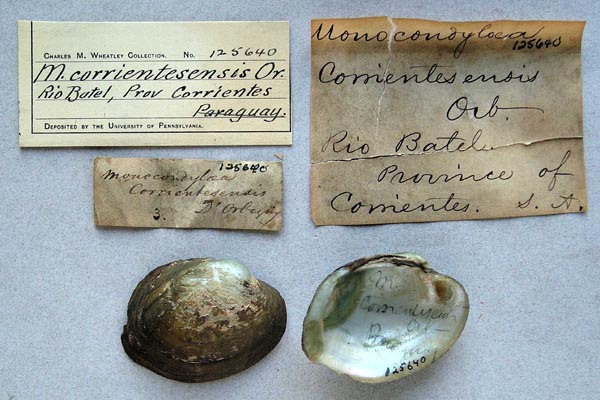 CHARLES M. WHEATLEY COLLECTION. No. 125640
M. corrientesensis Or.
Rio Batel, Prov Corrientes
Paraguay.
DEPOSITED BY THE UNIVERSITY OF PENNSYLVANIA.
Monocondylœa
125640
Corrientesensis
Orb.
Rio Batel.
Province of
Corrientes. S. A.
125640
Monocondylœa
Corrientesensis
3. D'Orbigny
M
Orb
125640